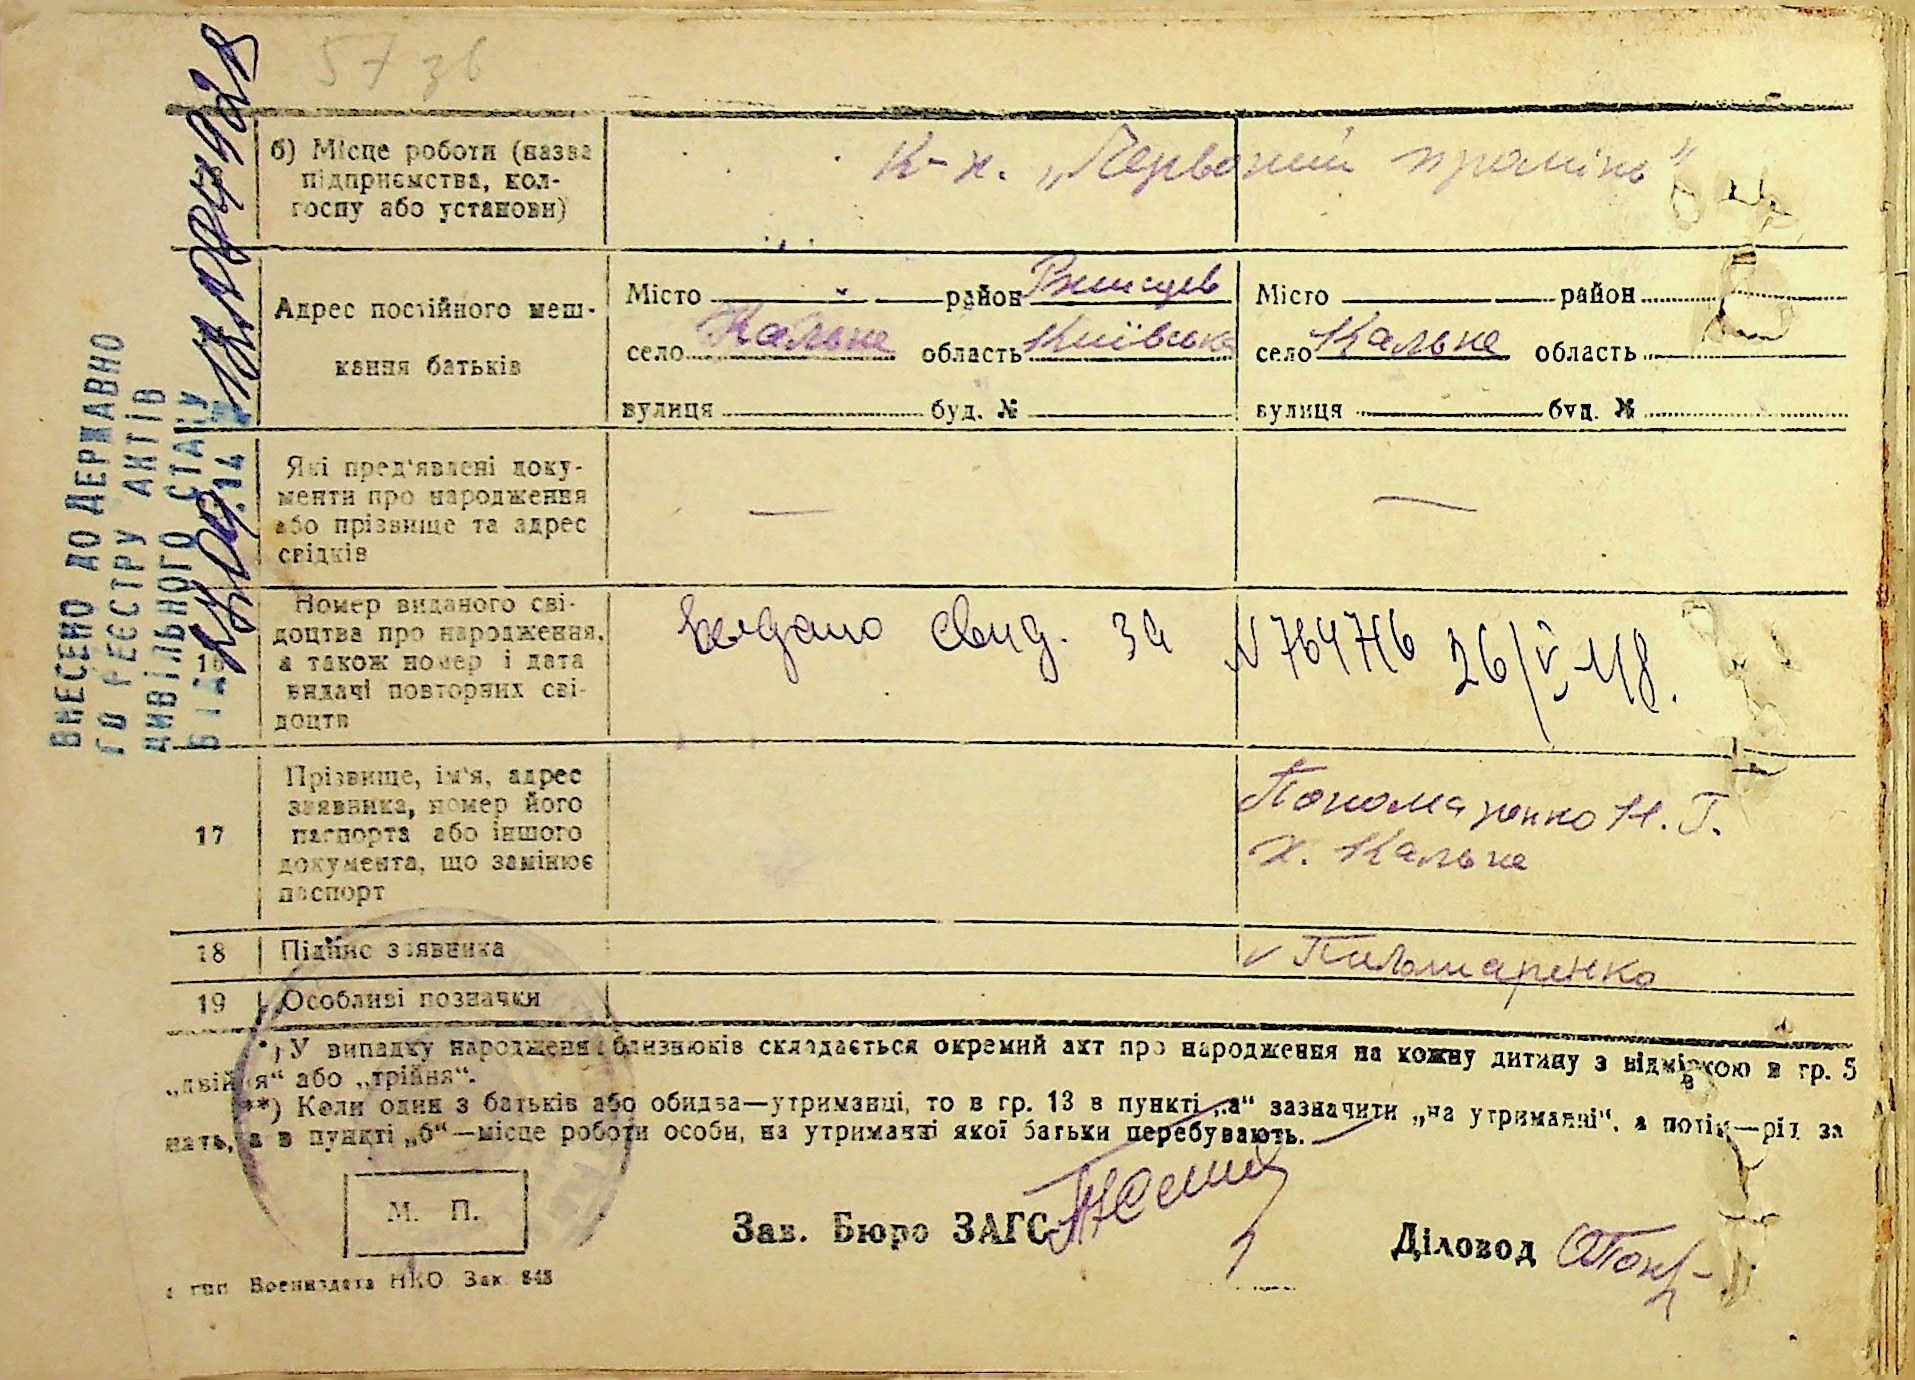 57 зв
б) Місце роботи (назва
підприємства, кол-
госпу або установи)
К-х. „Червоний промінь"
Адрес постійного меш-
кання батьків
Місто район
село Кальне область Київська
вулиця буд. №
Місто район
село Кальне область
вулиця буд. №
Які пред'явлені доку-
менти про народження
або прізвище та адрес
свідків
16
Номер виданого сві-
доцтва про народження,
а також номер і дата
видачі повторних сві-
доцтв
Выдано свид. за N 764716 26/V-48.
17
Прізвище, ім'я, адрес
заявника, номер його
паспорта або іншого
документа, що замінює
паспорт
Пономаренко Н. Г.
х. Кальне
18
Підпис заявника
19
Особливі позначки
*) У випадку народження близнюків складається окремий акт про народження на кожну дитину з відміткою в гр. 5
„двійня“ або „трійня“.
**) Коли один з батьків або обидва—утриманці, то в гр. 13 в пункті „а“ зазначити „на утриманні“, а потім—рід за
нять, а в пункті „б“—місце роботи особи, на утриманні якої батьки перебувають.
М. П.
Зав. Бюро ЗАГС
Діловод
тип Воениздата НКО Зак. 848
ВНЕСЕНО ДО ДЕРЖАВНО
ГО РЕЄСТРУ АКТІВ
ЦИВІЛЬНОГО СТАНУ